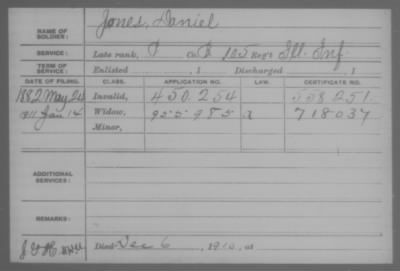 NAME OF SOLDIER: Jones, Daniel
SERVICE: Late rank, P Co. 105 Reg't Ill. Inf
TERM OF SERVICE: Enlisted , 1 Discharged , 1
DATE OF FILING. CLASS. APPLICATION NO. LAW. CERTIFICATE NO.
1882 May 24 Invalid, 450.254 558.251.
1911 Jan 14 Widow, 955985 718037
Minor,
ADDITIONAL SERVICES:
REMARKS:
Died Dec 6, 1910, at